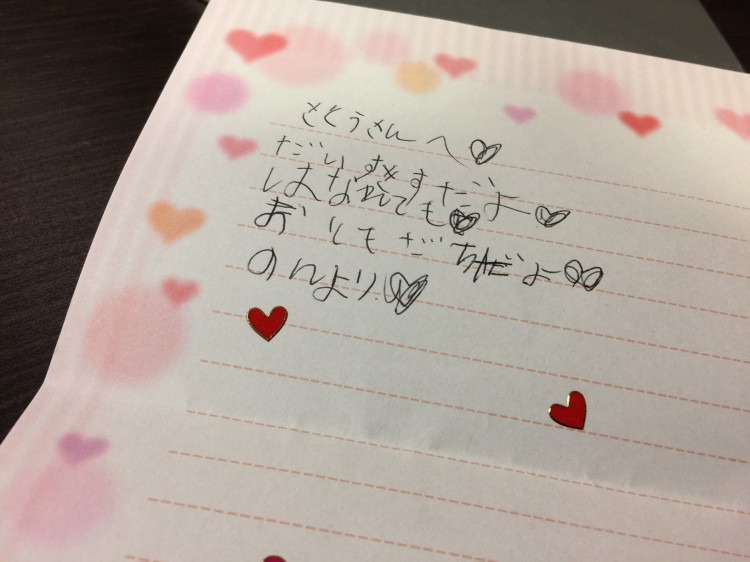 さとうさんへ♡
だいすきすだよー♡
はなれても♡
おともだちだよ♡
のんより♡